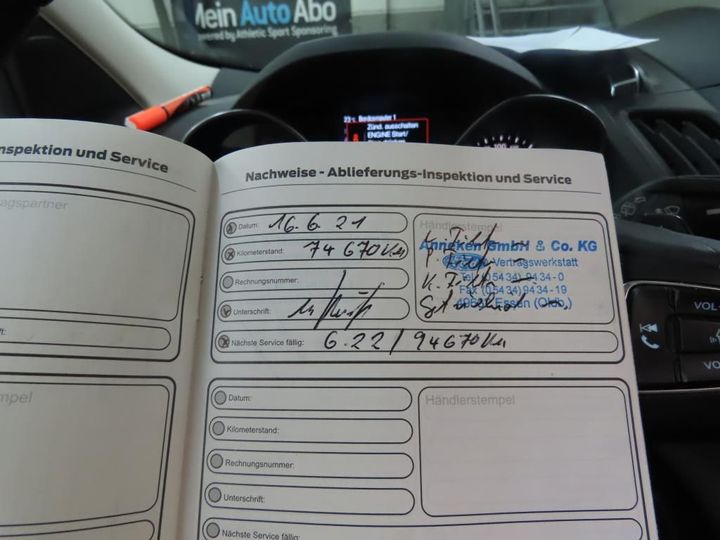 Mein Auto Abo
powered by Athletic Sport Sponsoring
23°C Bordcomputer 1
Zünd. ausschalten
ENGINE Start/
100
VOL
VO
nspektion und Service
agspartner
ft:
mpel
Nachweise - Ablieferungs-Inspektion und Service
Datum: 16.6.21
Kilometerstand: 74 670 Km
Rechnungsnummer:
Unterschrift:
Nächste Service fällig: 6.22 / 94670 Km
Händlerstempel
Anneken GmbH & Co. KG
Vertragswerkstatt
Tel. (05434) 9434-0
Fax (05434) 9434-19
49632 Essen (Oldb.)
Datum:
Kilometerstand:
Rechnungsnummer:
Unterschrift:
Nächste Service fällig:
Händlerstempel